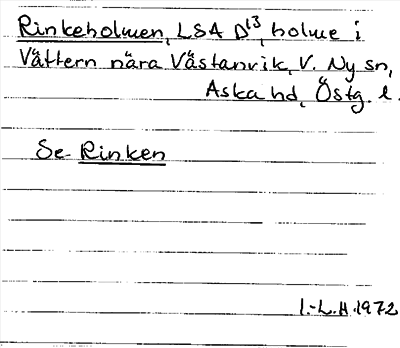 Rinkeholmen, LSA D13, holme i
Vättern nära Västanvik, V. Ny sn,
Aska hd, Östg. l.
Se Rinken
I.-L.H. 1972